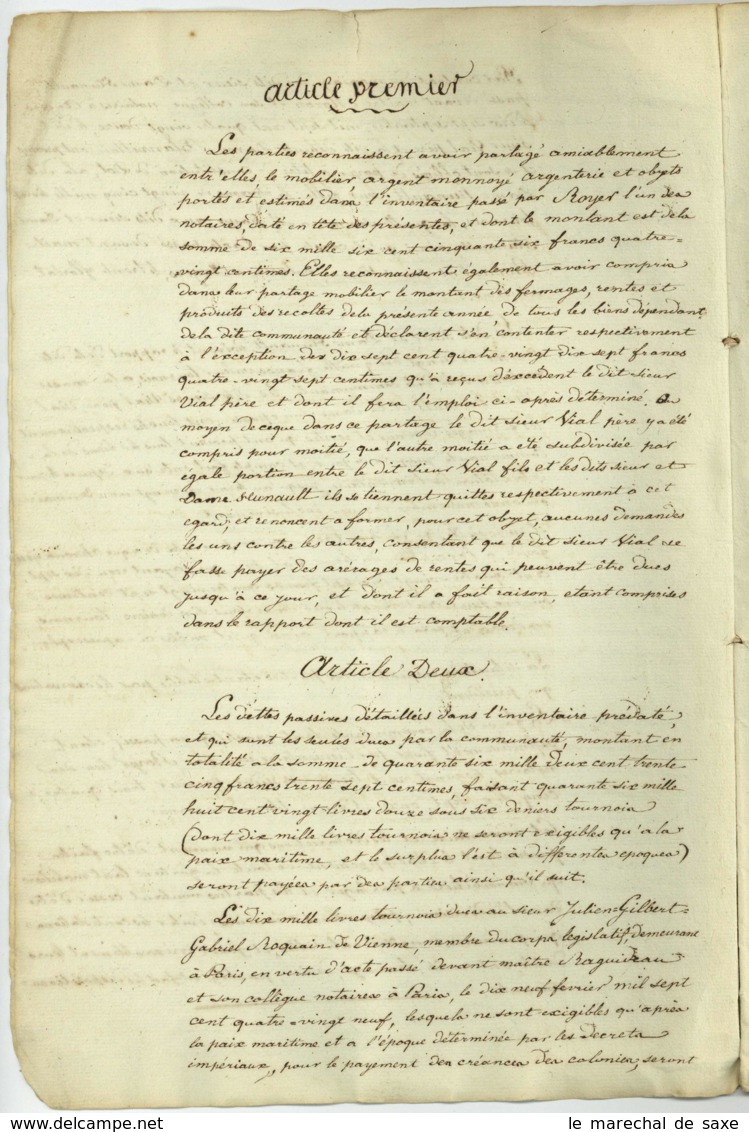 article premier
Les parties reconnaissent avoir partagé amiablement
entr'elles, le mobilier, argent monnoyé argenterie et objets
portés et estimés dans l'inventaire passé par Royer l'un des
notaires, daté en tête des présentes, et dont le montant est de la
somme de six mille six cent cinquante six francs quatre=
vingt centimes. Elles reconnaissent également avoir compris
dans leur partage mobilier le montant des fermages, rentes et
produits des recoltes de la présente année de tous les biens dépendant
de la dite communauté et déclarent s'en contenter respectivement
à l'exception des dix sept cent quatre-vingt dix sept francs
quatre-vingt sept centimes qu'a reçus d'excédent le dit sieur
Vial père et dont il fera l'emploi ci-après déterminé. au
moyen de ceque dans ce partage le dit sieur Vial père y a été
compris pour moitié, que l'autre moitié a été subdivisée par
egale portion entre le dit sieur Vial fils et les dits sieur et
Dame hunault ils se tiennent quittes respectivement à cet
egard, et renoncent a former, pour cet objet, aucunes demandes
les uns contre les autres, consentant que le dit sieur Vial se
fasse payer des arérages de rentes qui peuvent être dues
jusqu'à ce jour, et dont il a fait raison, etant comprises
dans le rapport dont il est comptable.
Article Deux.
Les dettes passives détaillées dans l'inventaire prédaté,
et qui sont les seules dues par la communauté, montant en
totalité a la somme de quarante six mille deux cent trente
cinq francs trente sept centimes, faisant quarante six mille
huit cent vingt livres douze sous six deniers tournois
(dont dix mille livres tournois ne seront exigibles qu'a la
paix maritime, et le surplus l'est à differentes epoques)
seront payées par des parties ainsi qu'il suit.
Les dix mille livres tournois dues au sieur Julien=Gilbert=
Gabriel Roquain de Vienne, membre du corps legislatif, demeurant
à Paris, en vertu d'acte passé devant maître Raguideau
et son collègue notaires à Paris, le dix neuf fevrier mil sept
cent quatre-vingt neuf, lesquels ne sont exigibles qu'après
la paix maritime et a l'époque déterminée par les decrets
impériaux, pour le payement des créances des colonies, seront
le marechal de saxe